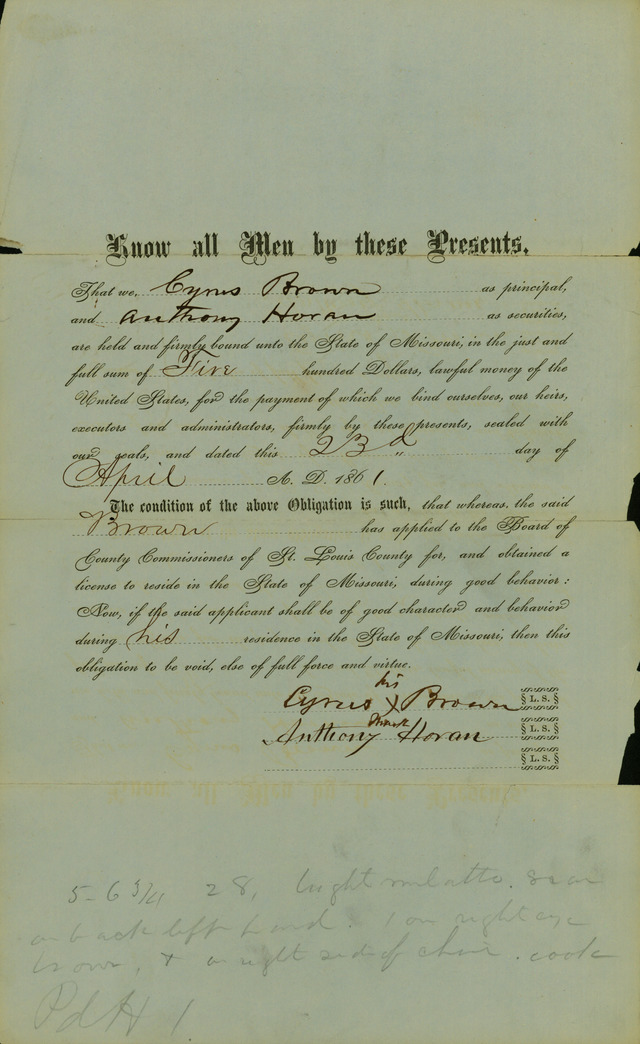 Know all Men by these Presents,
That we, Cyrus Brown as principal,
and Anthony Horan as securities,
are held and firmly bound unto the State of Missouri, in the just and
full sum of Five hundred Dollars, lawful money of the
United States, for the payment of which we bind ourselves, our heirs,
executors and administrators, firmly by these presents, sealed with
our seals, and dated this 23d day of
April A. D. 1861.
The condition of the above Obligation is such, that whereas, the said
Brown has applied to the Board of
County Commissioners of St. Louis County for, and obtained a
license to reside in the State of Missouri, during good behavior:
Now, if the said applicant shall be of good character and behavior
during his residence in the State of Missouri, then this
obligation to be void, else of full force and virtue.
his
Cyrus X Brown L. S.
mark
Anthony Horan L. S.
L. S.
5-6 3/4 28, bright mulatto. scar
on back left hand. 1 on right eye
brown, + on right side of chin. cook
Pd H 1